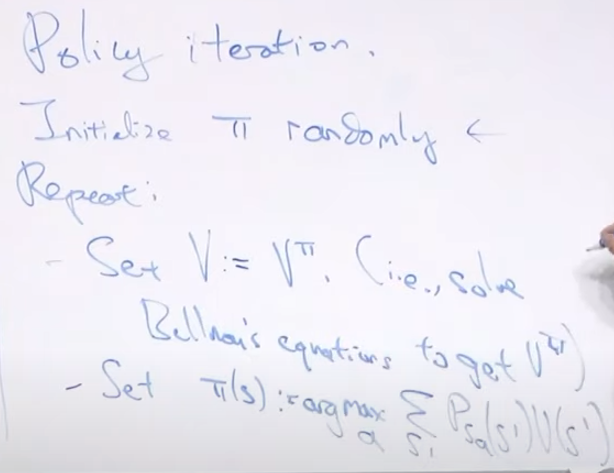 Policy iteration.
Initialize π randomly ←
Repeat:
- Set V := V^π. (i.e., solve
Bellman's equations to get V^π)
- Set π(s) := argmax_a Σ_s' P_sa(s') V(s')